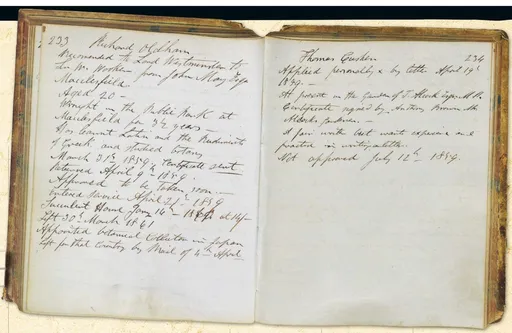 233 Richard Oldham
Recommended to Lord Westminster to
Sir W. Hooker from John May Esqr
Macclesfield.
Aged 20 —
Wrought in the Public Park at
Macclesfield for 3½ years
Has learnt Latin and the Rudiments
of Greek and studied botany
March 31st 1859. Certificate sent
Returned April 9th 1859.
Approved to be taken soon —
Entered service April 21st 1859
Succulent House June 16th at 14/-
Left 30th March 1861
Appointed botanical Collector in Japan
Left for that Country by Mail of 4th April
Thomas 234
Applied personally & by letter April 19th
1859.
At present in the Garden of T. Esqr M.P.
Certificate signed by Brown Mr
gardener. —
A fair but wants experience and
practice in writing letters.
Not approved July 12th 1859.